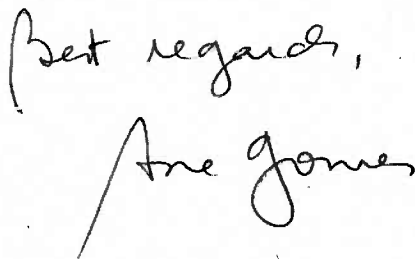 Best regards,
Ana Gomes